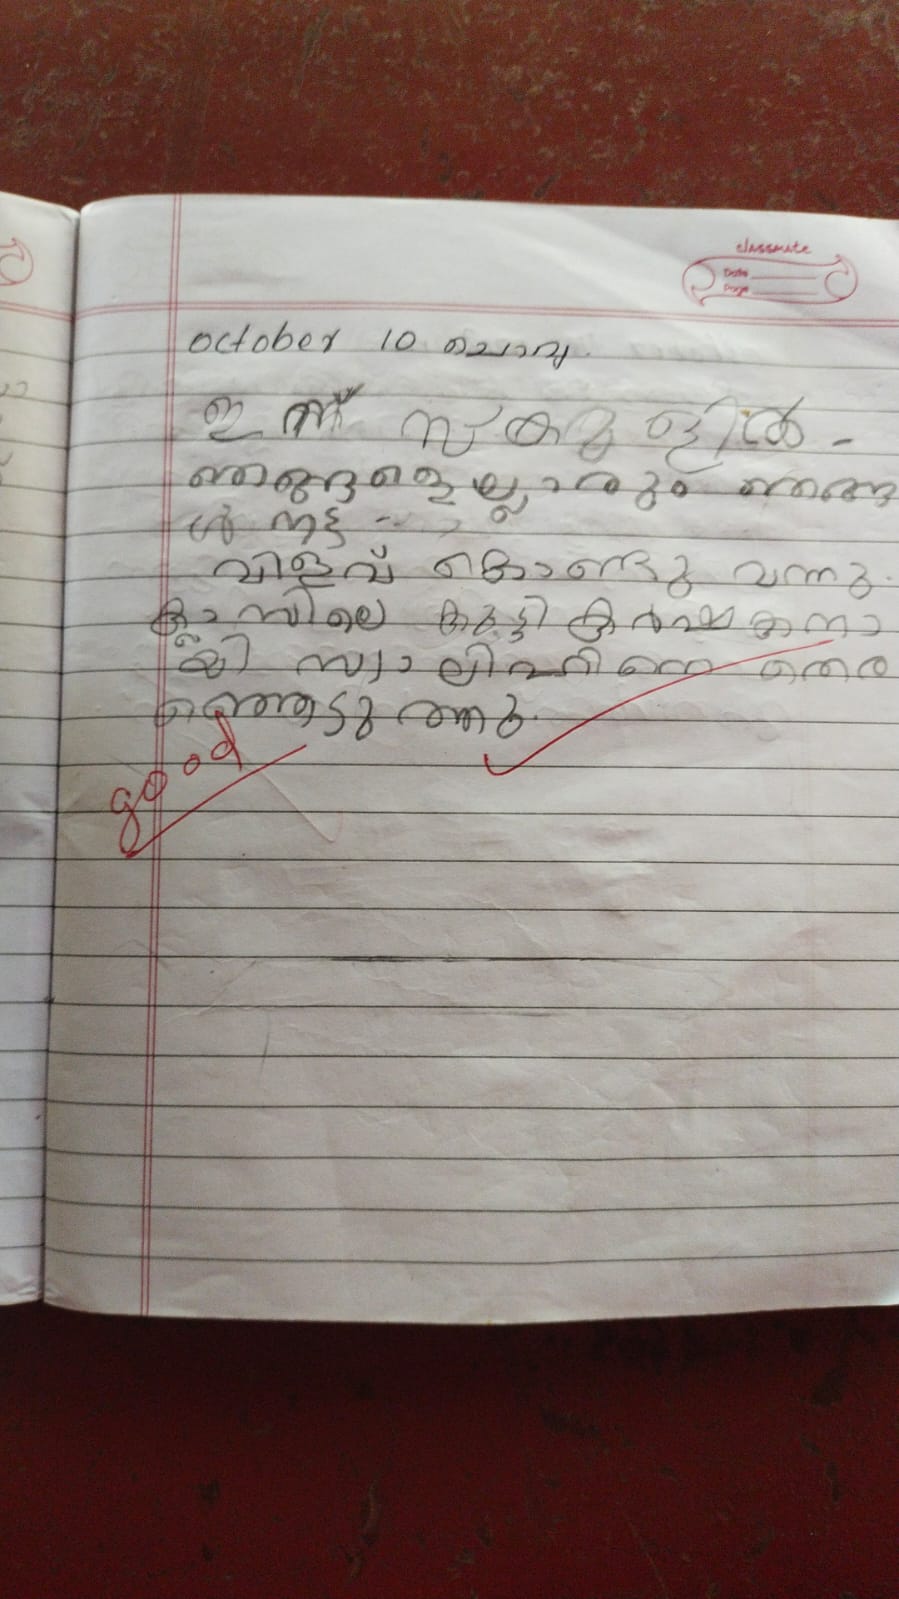 classmate
Date
Page
October 10 ചൊവ്വ.
ഇന്ന് സ്കൂളിൽ -
ഞങ്ങളെല്ലാരും ഞങ്ങ
ൾ നട്ട
വിളവ് കൊണ്ടു വന്നു.
ക്ലാസിലെ കുട്ടി കർഷകനാ
യി സ്വാലിഹിനെ തെര
ഞ്ഞെടുത്തു.
good